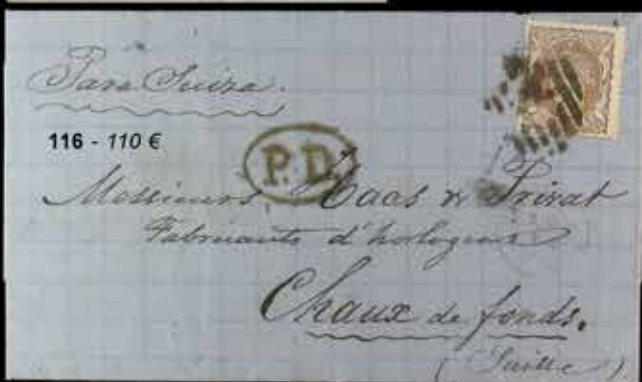 Para Suiza.
116 - 110 €
P.D
Messieurs Haas & Privat
Fabricants d'horlogerie
Chaux de fonds.
(Suisse)